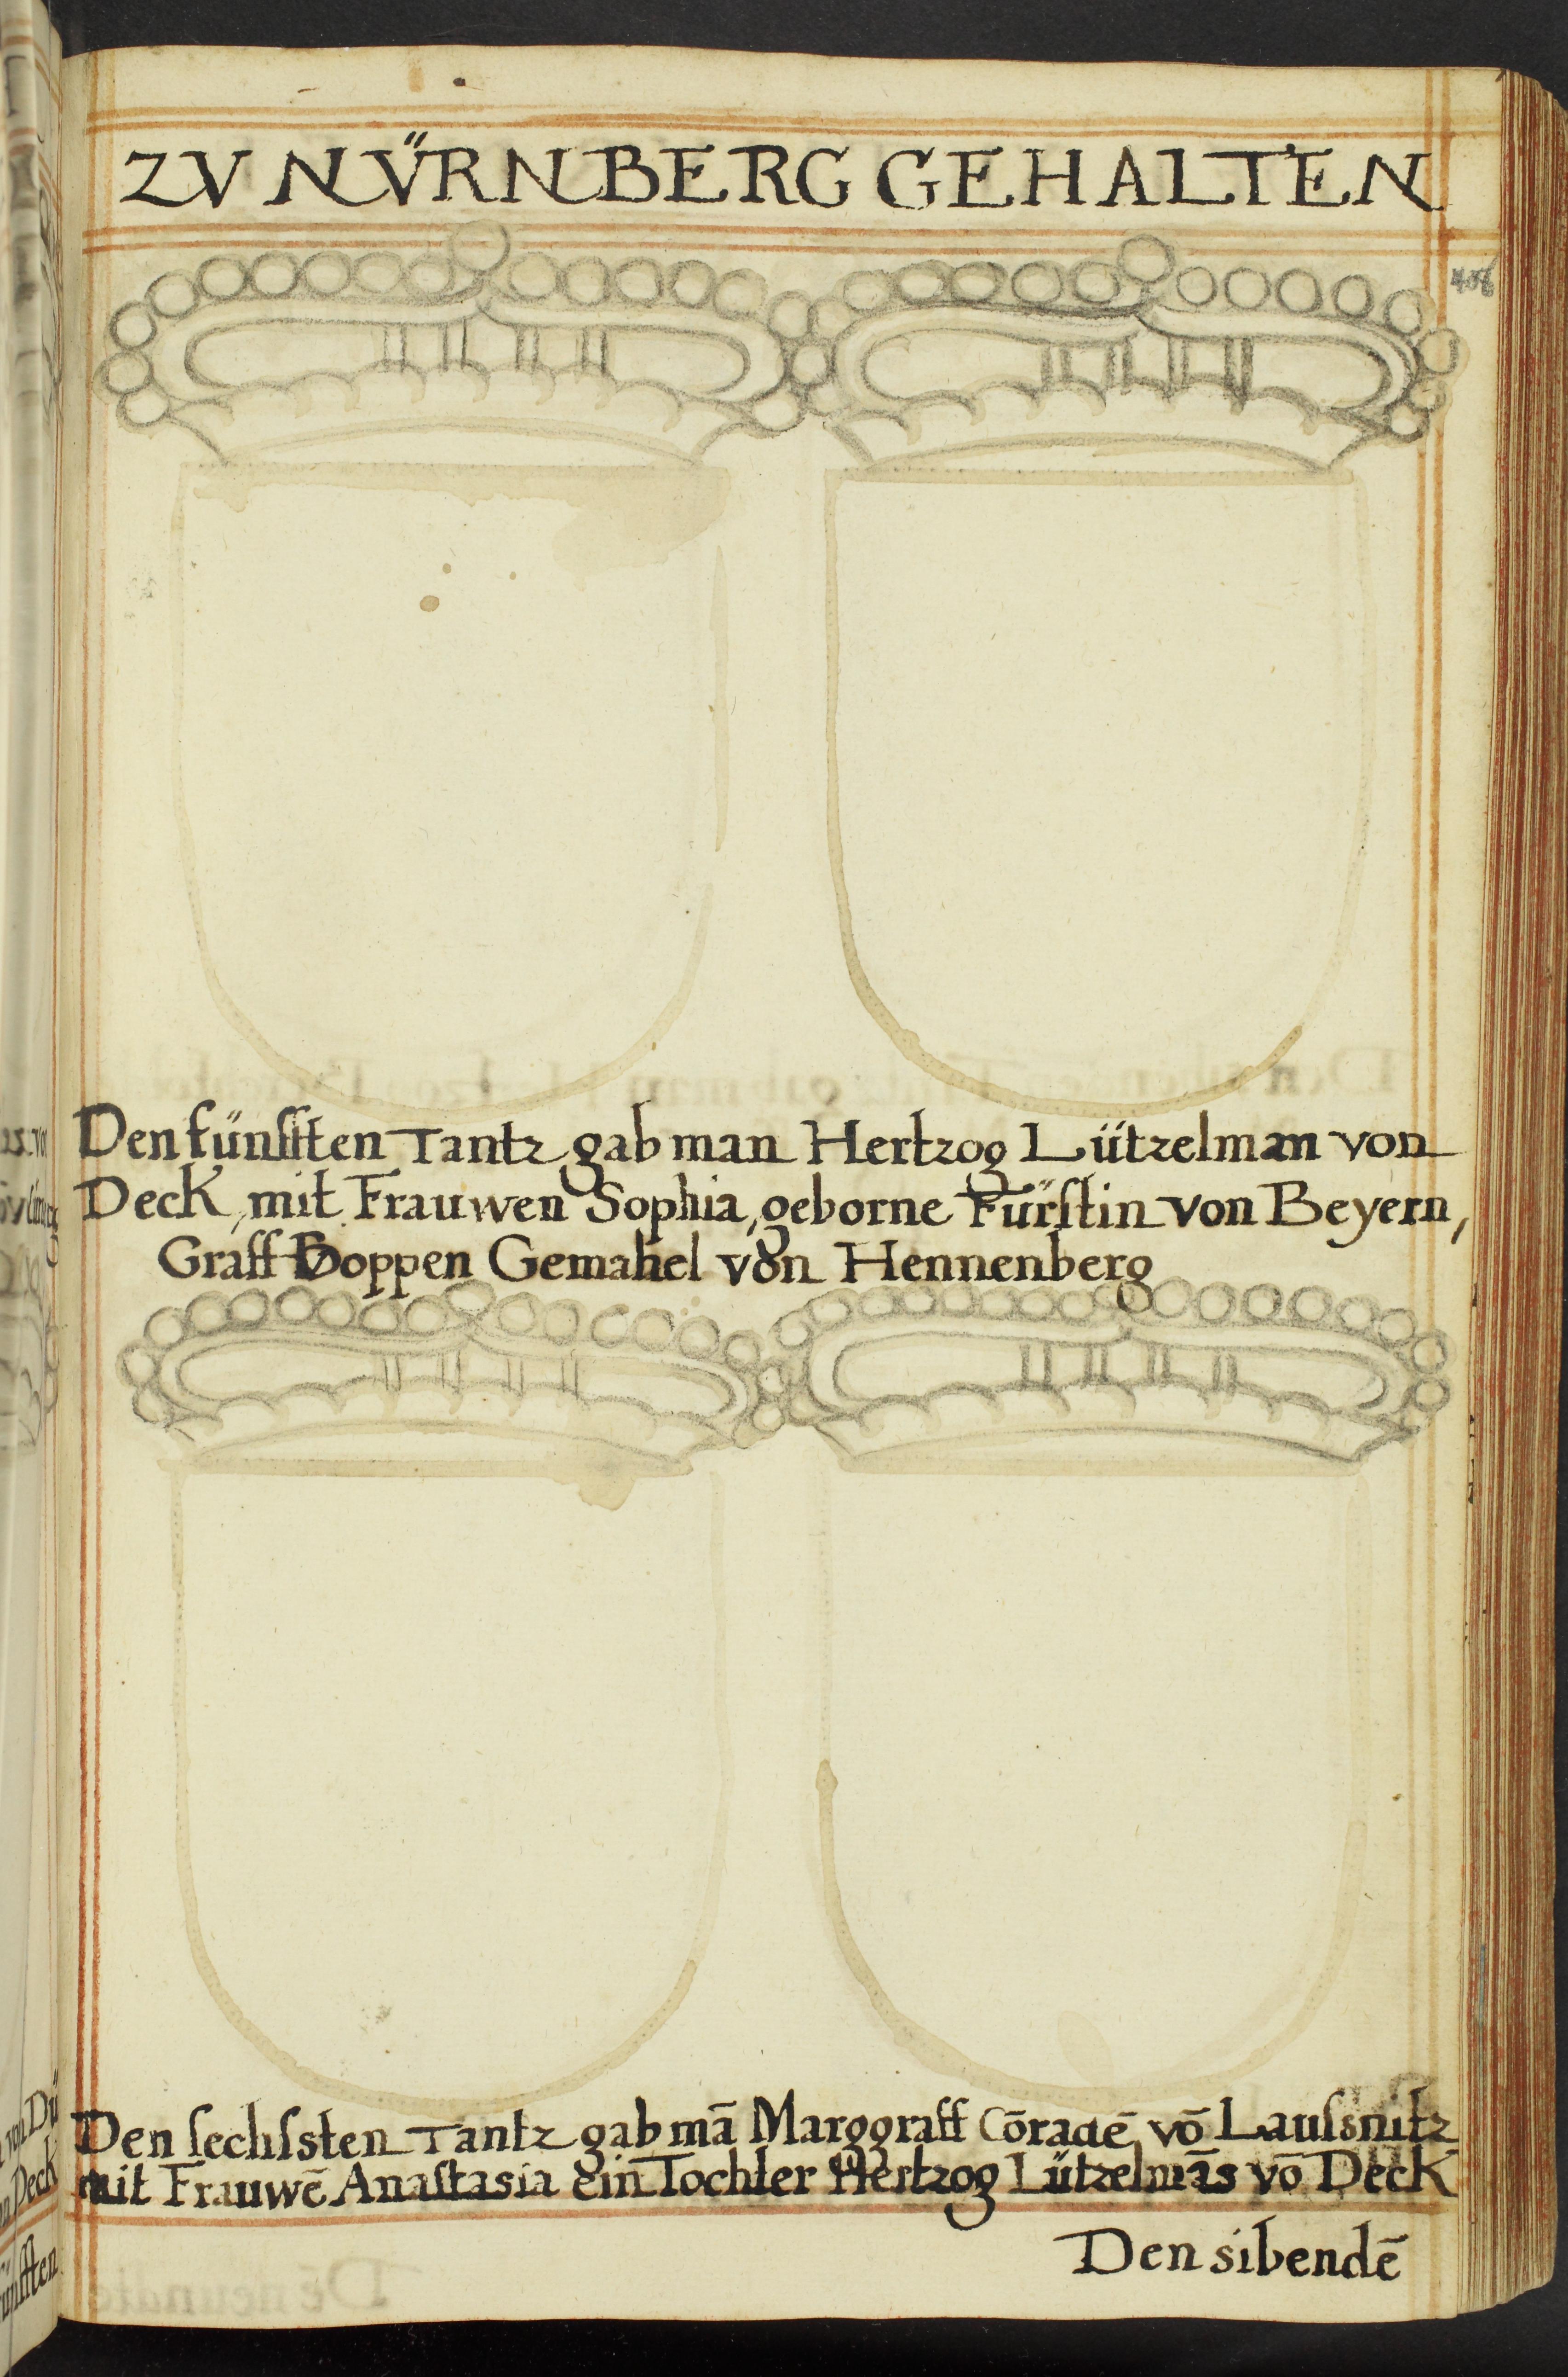 ZV NÜRNBERG GEHALTEN
Den fünfften Tantz gab man Hertzog Lützelman von
Deck, mit Frauwen Sophia, geborne Fürſtin von Beyern,
Graff Boppen Gemahel von Hennenberg
Den ſechſsten Tantz gab mā Marggraff Cōradē vō Lauſsnitz
mit Frauwē Anaſtasia ein Tochter Hertzog Lützelmās vō Deck
Den sibendē